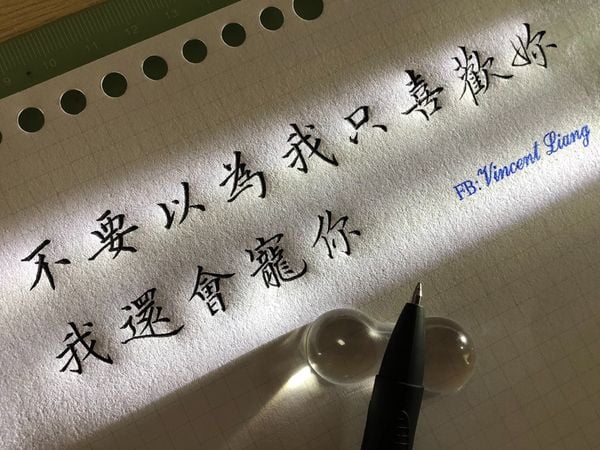 不要以為我只喜歡妳
我還會寵你
FB:Vincent Liang